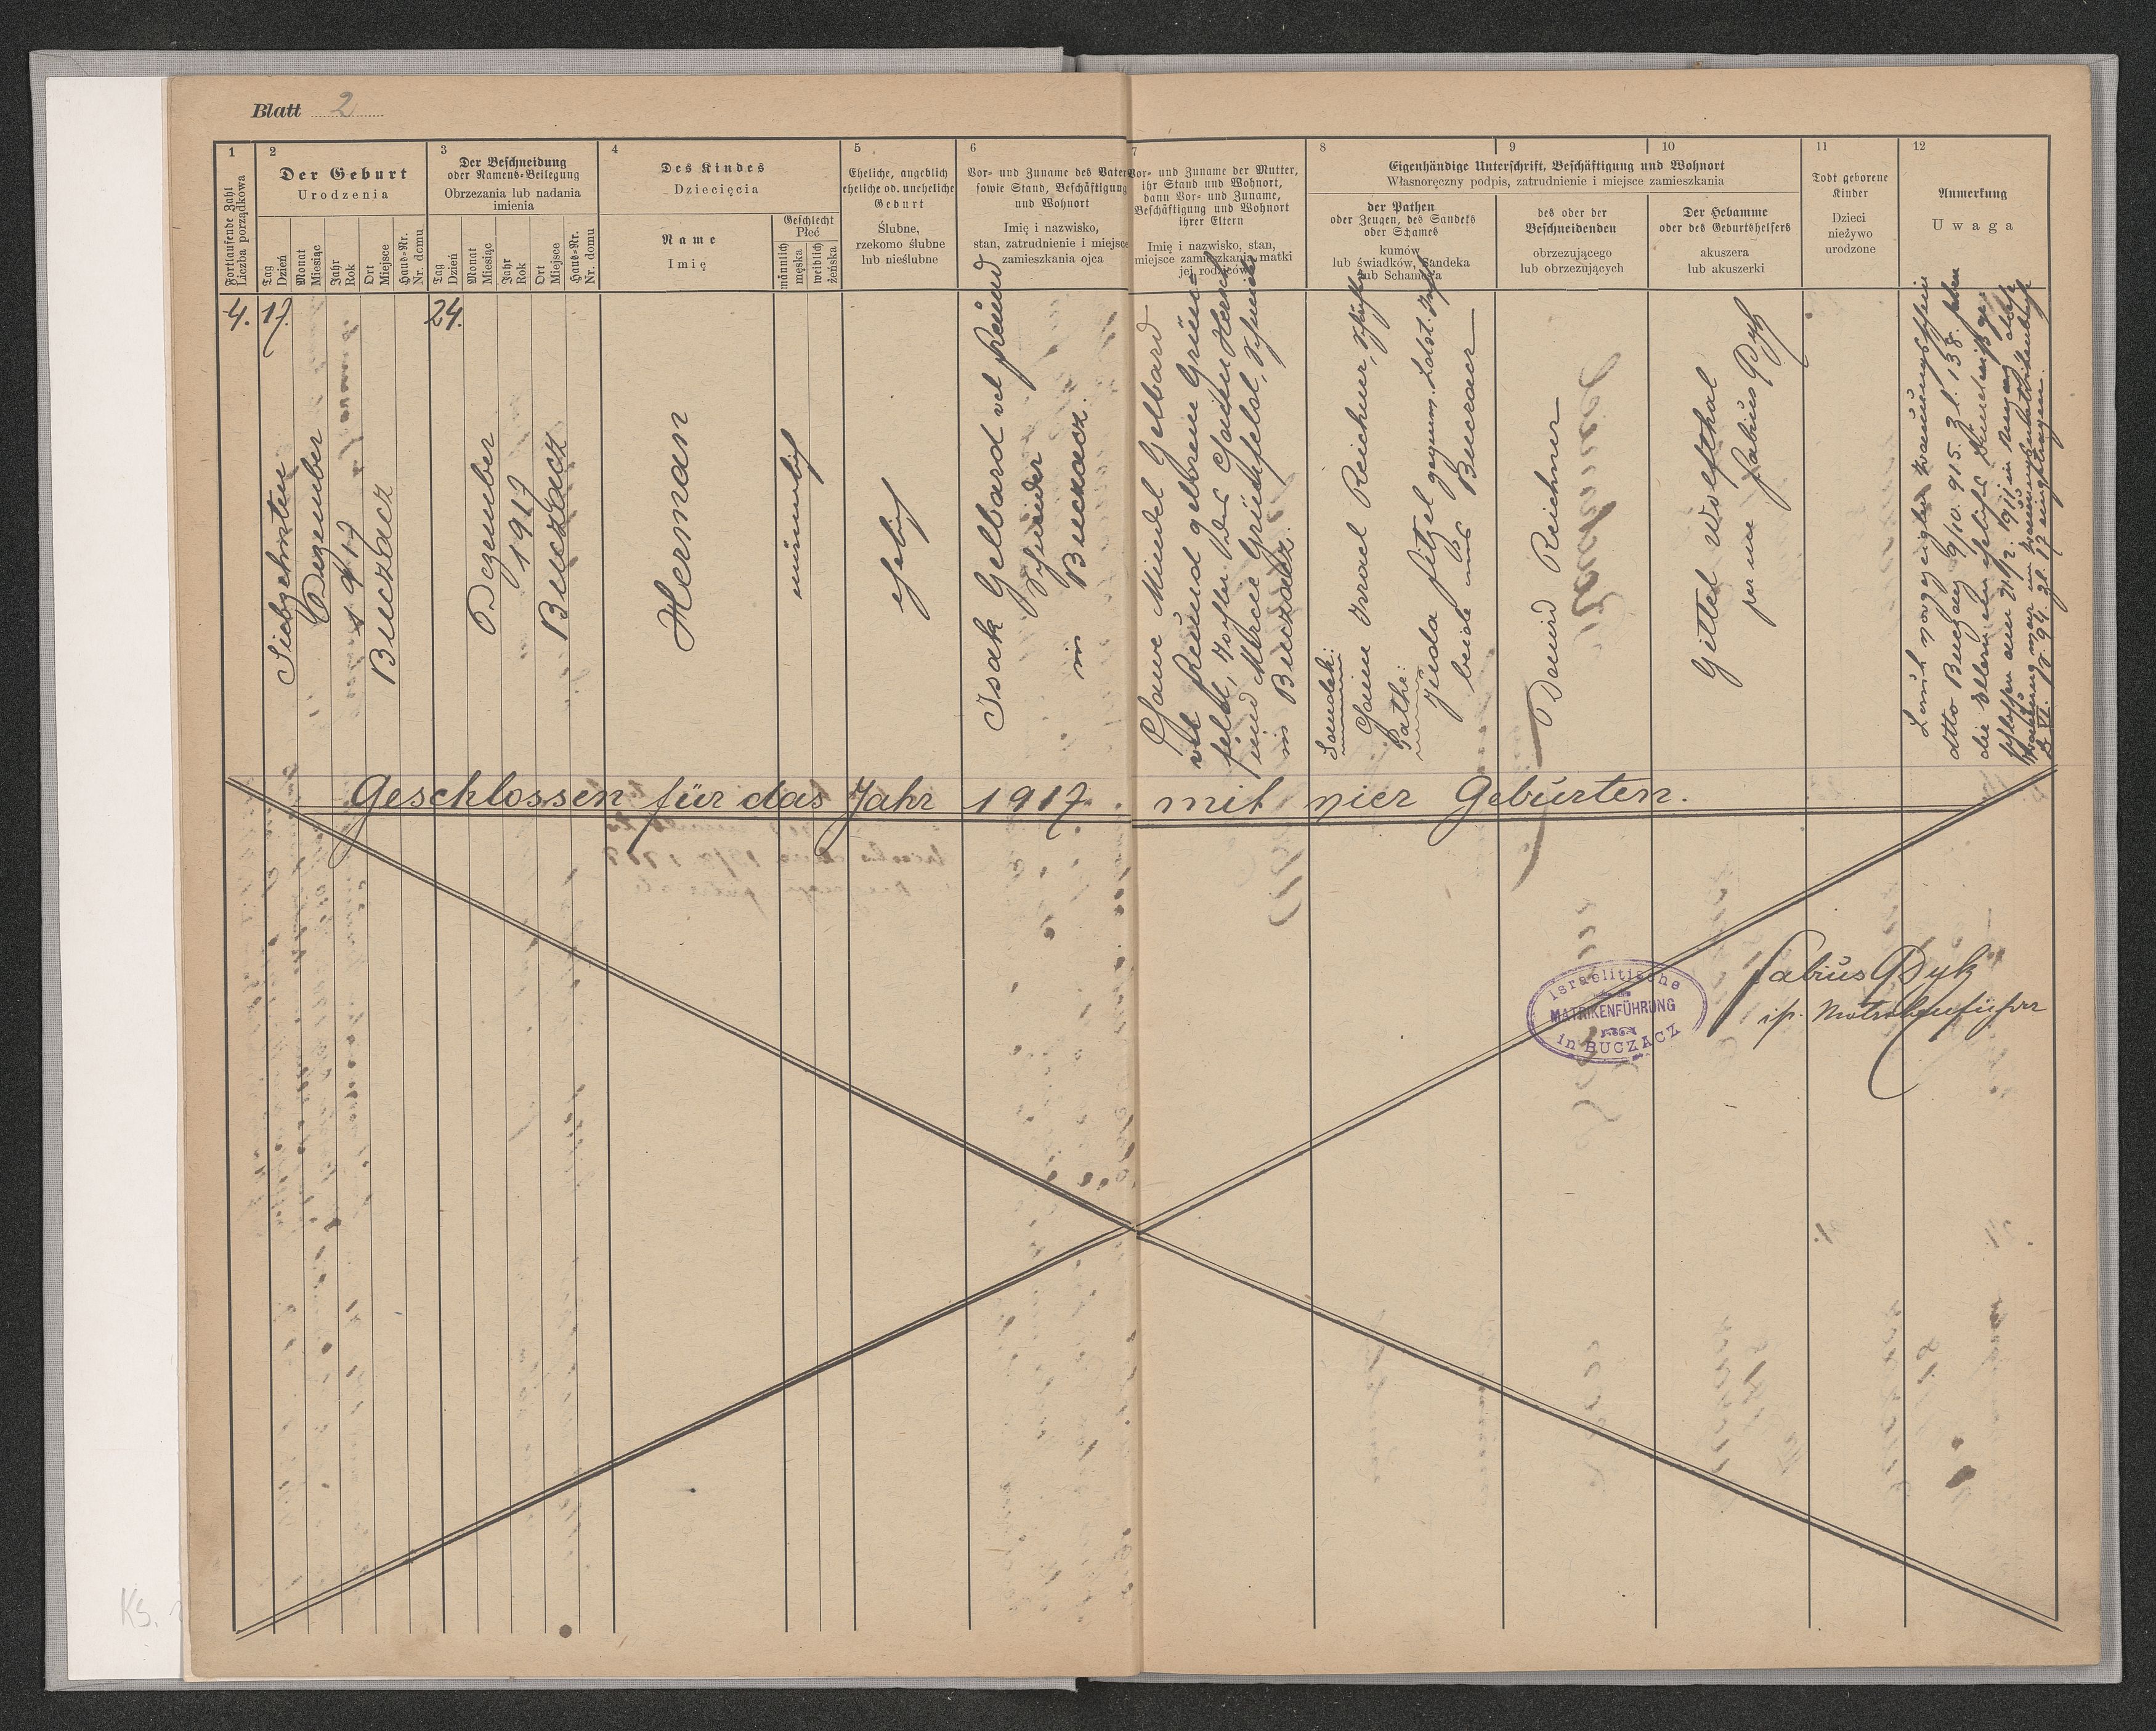 Blatt 2
1
Fortlaufende Zahl
Liczba porządkowa
2
Der Geburt
Urodzenia
Tag
Dzień
Monat
Miesiąc
Jahr
Rok
Ort
Miejsce
Haus-Nr.
Nr. domu
3
Der Beschneidung
oder Namens-Beilegung
Obrzezania lub nadania
imienia
Tag
Dzień
Monat
Miesiąc
Jahr
Rok
Ort
Miejsce
Haus-Nr.
Nr. domu
4
Des Kindes
Dziecięcia
Name
Imię
Geschlecht
Płeć
männlich
męska
weiblich
żeńska
5
Eheliche, angeblich
eheliche od. uneheliche
Geburt
Ślubne,
rzekomo ślubne
lub nieślubne
6
Vor- und Zuname des Vaters
sowie Stand, Beschäftigung
und Wohnort
Imię i nazwisko,
stan, zatrudnienie i miejsce
zamieszkania ojca
7
Vor- und Zuname der Mutter,
ihr Stand und Wohnort,
dann Vor- und Zuname,
Beschäftigung und Wohnort
ihrer Eltern
Imię i nazwisko, stan,
miejsce zamieszkania matki
jej rodziców
Eigenhändige Unterschrift, Beschäftigung und Wohnort
Własnoręczny podpis, zatrudnienie i miejsce zamieszkania
8
der Pathen
oder Zeugen, des Sandeks
oder Schames
kumów
lub świadków, Sandeka
lub Schamesa
9
des oder der
Beschneidenden
obrzezującego
lub obrzezujących
10
Der Hebamme
oder des Geburtshelfers
akuszera
lub akuszerki
11
Todt geborene
Kinder
Dzieci
nieżywo
urodzone
12
Anmerkung
Uwaga
4.
17.
Siebzehnten
Dezember
1917
Buczacz
24.
Dezember
1917
Buczacz
Herman
männlich
ehelich
Isak Gelbard vel Freund
Schneider
in Buczacz.
Chane Mindel Gelbard
vel Freund geborene Grün-
feld, Tochter des Chaim Hersch
und Mircie Grünfeld, Schneider
in Buczacz.
Sandek:
Chaim Israel Reichner,
Pathe:
Juda Fitzel
beide aus Buczacz
Dawid Reichner
Gittel Wolfthal
per me Fabius Dyk
Laut vorgezeigten Trauungsschein
dtto Buczacz 9/10. 915. Zl. 138. haben
die Eltern
Geschlossen für das Jahr 1917. mit vier Geburten.
Israelitische
MATRIKENFÜHRUNG
in BUCZACZ
Fabius Dyk
isr. Matrikenführer
Ks.